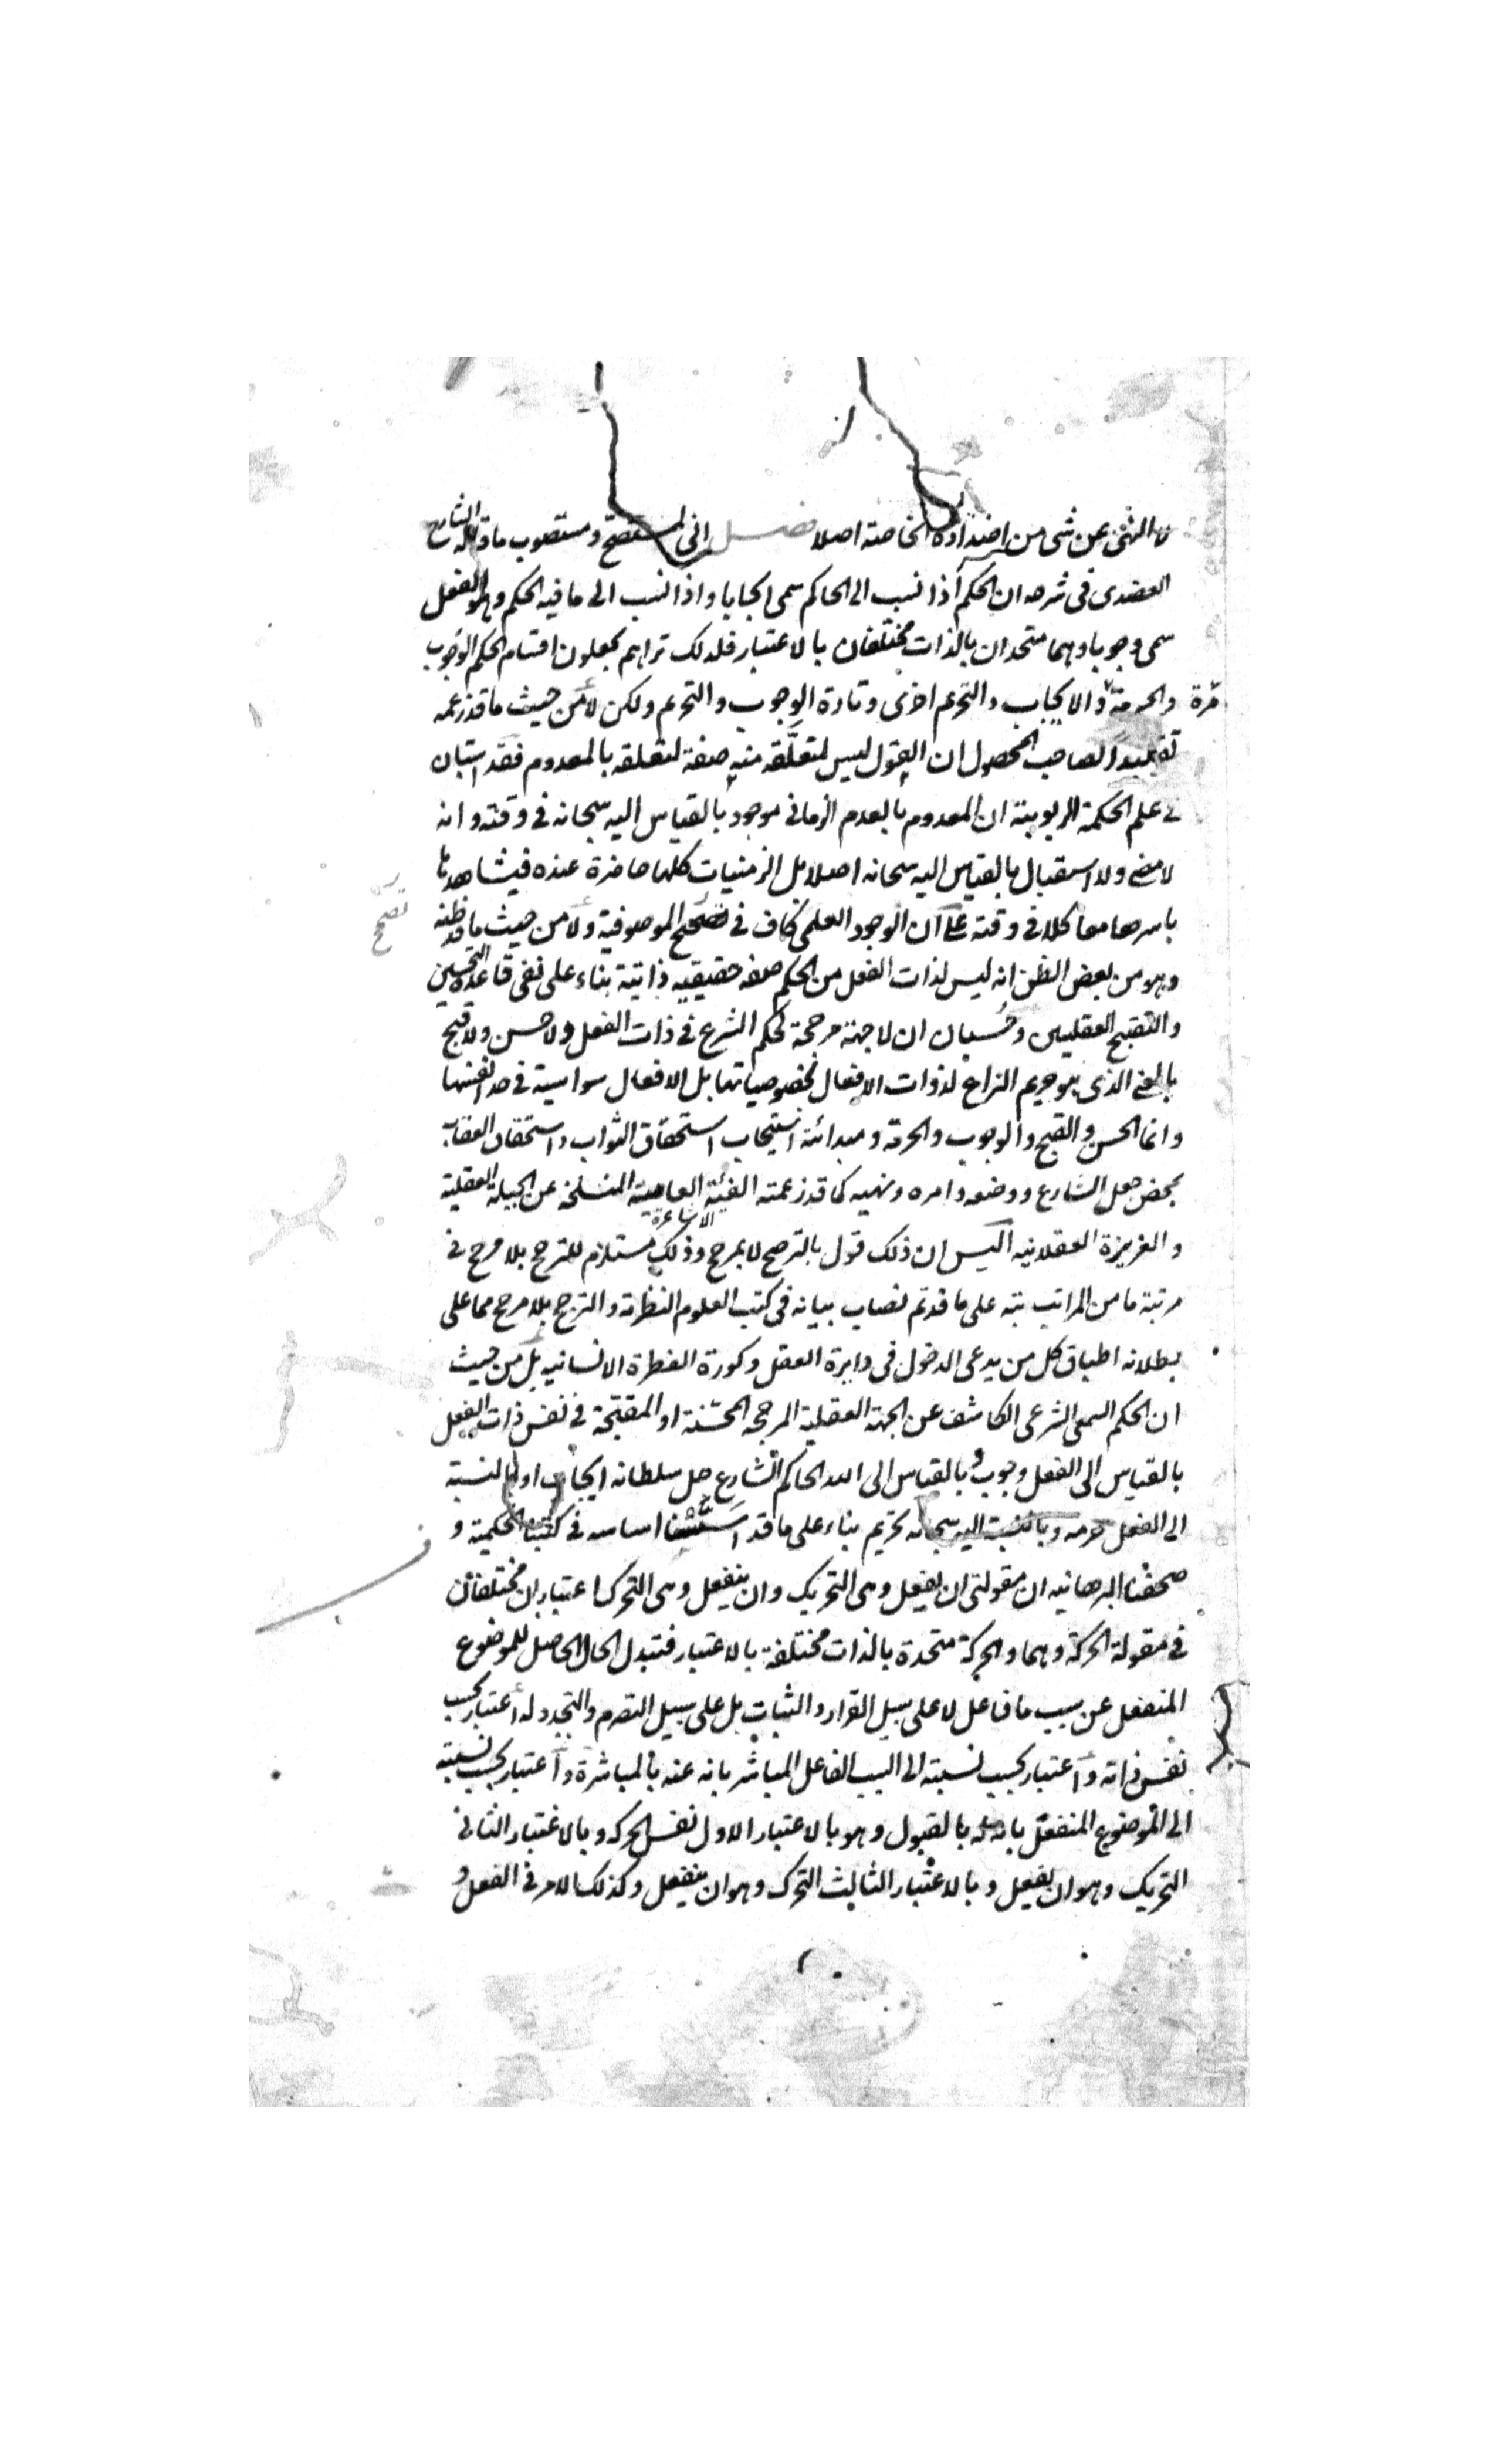 النهى عن شى من اضداده الخاصة اصلا فصل انى لمستصح و مستصوب ما قاله الشارح
العضدى فى شرحه ان الحكم اذا نسب الى الحاكم سمى ايجابا واذا نسب الى ما فيه الحكم وهو الفعل
سمى وجوبا وهما متحدان بالذات مختلفان بالاعتبار فلذلك تراهم يجعلون اقسام الحكم الوجوب
والحرمة مرة والايجاب والتحريم اخرى وتارة الوجوب والتحريم ولكن لا من حيث ما قد زعمه
تقليدا لصاحب المحصول ان القول ليس لمتعلقه منه صفة لتعلقه بالمعدوم فقد استبان
فى علم الحكمة الربوبية ان المعدوم بالعدم الزمانى موجود بالقياس اليه سبحانه فى وقته وانه
لا مضى ولا استقبال بالقياس اليه سبحانه اصلا بل الزمنيات كلها حاضرة عنده فيشاهدها
باسرها معا كلا فى وقته على ان الوجود العلمى كاف فى تصحح الموصوفية ولا من حيث ما قد ظنه
تصحح
وهو من بعض الظن انه ليس لذات الفعل من الحكم صفه حقيقيه ذاتية بناء على نفى قاعدة التحسين
والتقبيح العقليين وحسبان ان لا جهة مرجحة لحكم الشرع فى ذات الفعل ولا حسن ولا قبح
بالمعنى الذى هو حريم النزاع لذوات الافعال بخصوصياتها بل الافعال سواسية فى حد انفسها
وانما الحسن والقبح والوجوب والحرمة ومبدائة استيجاب استحقاق الثواب واستحقاق العقاب
بمحض جعل الشارع ووضعه وامره ونهيه كما قد زعمته الفئة العامية المنسلخة عن الجبلة العقلية
الاشاعرة
والغريزة العقلانيه اليس ان ذلك قول بالترجيح لا بمرجح وذلك مستلزم للترجح بلا مرجح فى
مرتبة ما من المراتب بتة على ما قد تم نصاب بيانه فى كتب العلوم النظرية والترجح بلا مرجح مما على
بطلانه اطباق كل من يدعى الدخول فى دايرة العقل وكورة الفطرة الانسانيه بل من حيث
ان الحكم السمعى الشرعى الكاشف عن الجهة العقلية المرجحه المحسّنة او المقبّحة فى نفس ذات الفعل
بالقياس الى الفعل وجوب وبالقياس الى الله الحاكم الشارع جل سلطانه ايجاب او بالنسبة
الى الفعل حرمه وبالنسبة اليه سبحانه تحريم بناء على ما قد اسسنا اساسه فى كتبنا الحكمية و
صحفنا البرهانيه ان مقولتى ان يفعل وهى التحريك وان ينفعل وهى التحرك اعتباران مختلفان
فى مقولة الحركة وهما والحركة متحدة بالذات مختلفة بالاعتبار فتبدل الحال الحاصل للموضوع
المنفعل عن سبب ما فاعل لا على سبيل القرار والثبات بل على سبيل التصرم والتجدد له اعتبار بحسب
نفس ذاته واعتبار بحسب نسبته الى السبب الفاعل المباشر بانه عنه بالمباشرة واعتبار بحسب نسبته
الى الموضوع المنفعل بانه له بالقبول وهو بالاعتبار الاول نفس الحركه وبالاعتبار الثانى
التحريك وهو ان يفعل وبالاعتبار الثالث التحرك وهو ان ينفعل وكذلك الامر فى الفعل و